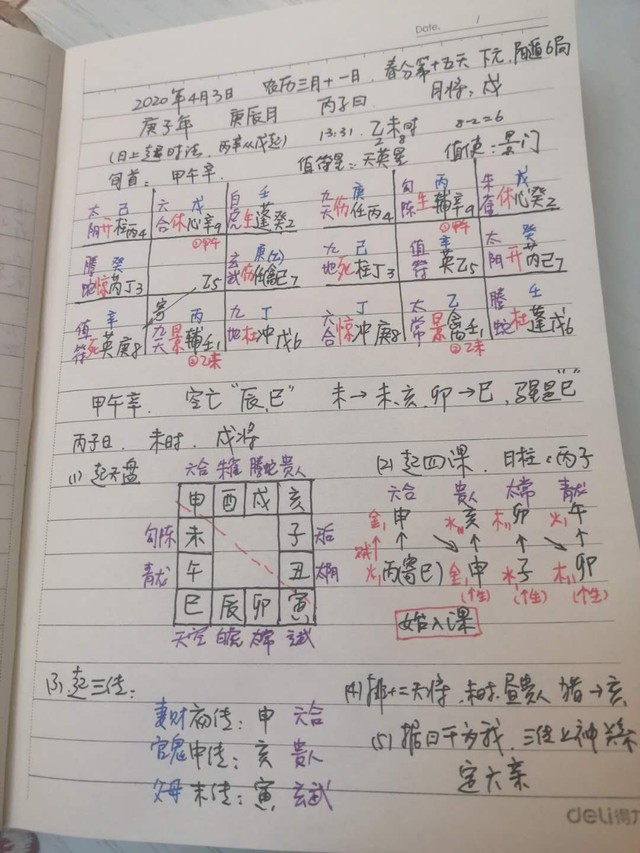 Date. 1
2020年4月3日 农历三月十一日. 春分第十五天 下元. 阳遁6局
庚子年 庚辰月 丙子日 月将: 戌
(日上起时法. 丙辛从戊起) 13:31. 乙未时 8-2=6
2 8
旬首: 甲午辛. 值符星: 天英星 值使: 景门
太 己 六 戊 白 壬 九 庚 勾 丙 朱 戊
阴开柱丙4 合休心辛9 虎生蓬癸2 天伤任丙4 陈生辅辛9 雀休心癸2
①甲午 ①甲午
螣 癸 玄 庚(乙) 九 己 值 辛 太 癸
蛇惊芮丁3 乙5 武伤任禽己7 地死柱丁3 符 英乙5 阴开芮己7
值 辛 寄 九 丙 九 丁 六 丁 太 乙 螣 壬
符死英庚8 天景辅壬1 地杜冲戊6 合惊冲庚8 常景禽壬1 蛇杜蓬戊6
②乙未 ②乙未
甲午辛. 空亡“辰、巳” 未→未、亥、卯→巳, 驿马是“巳”
丙子日. 未时. 戌将
(1) 起天盘 六合 朱雀 螣蛇 贵人
申 酉 戌 亥
勾陈 未 子 天后
青龙 午 丑 太阴
巳 辰 卯 寅
天空 白虎 太常 玄武
(2) 起四课. 日柱: 丙子
六合 贵人 太常 青龙
金, 申 水, 亥 木, 卯 火, 午
火, 丙(寄巳) 金, 申 水, 子 木, 卯
(个生) (个生) (个生)
始入课
(3) 起三传:
妻财 初传: 申 六合
官鬼 中传: 亥 贵人
父母 末传: 寅 玄武
(4) 排十二天将. 未时. 昼贵人 猪→亥
(5) 据日干为我. 三传上神关系
定六亲
deli得力